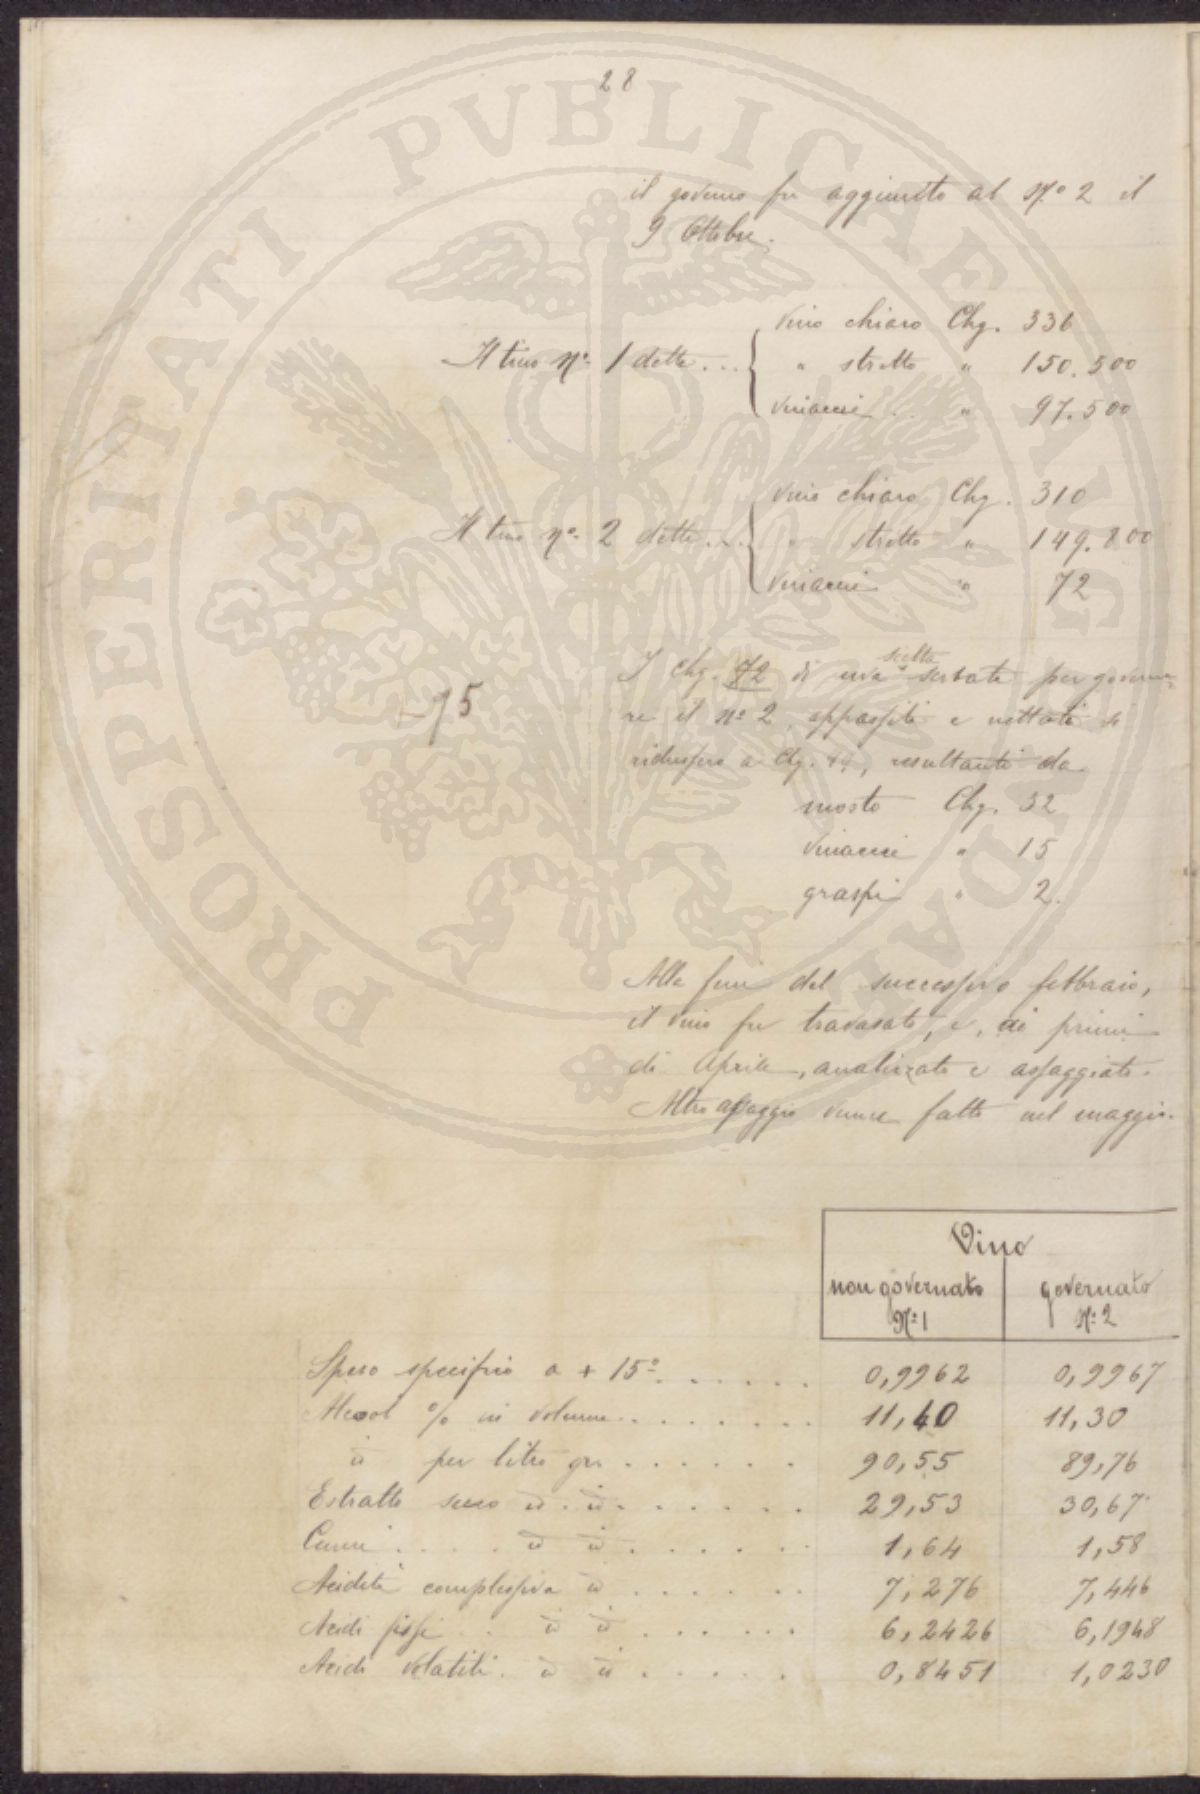 28
PROSPERITATI PUBLICAE AUGENDAE
il governo fu aggiunto al Nº 2 il
9 Ottobre.
Il tino Nº 1 dette... { Vino chiaro Chg. 336
" stretto " 150.500
Vinaccie .. " 97.500
Il tino nº 2 dette... { Vino chiaro Chg. 310
" stretto " 149.800
Vinaccie " 72
75
scelta
I Chg. 72 di uva serbata per governa-
re il nº 2, appassiti e nettati si
ridussero a Chg. 49, resultanti da
mosto Chg. 32
Vinaccie " 15
graspi " 2.
Alla fine del successivo febbraio,
il vino fu travasato, e, ai primi
di Aprile, analizzato e assaggiato.
Altro assaggio venne fatto nel maggio.
Vino
non governato governato
Nº 1 Nº 2
Speso specifico a + 15º...... 0,9962 0,9967
Alcool % in volume....... 11,40 11,30
id per litro gr...... 90,55 89,76
Estratto secco id. id....... 29,53 30,67
Ceneri.... id id...... 1,64 1,58
Acidità complessiva id...... 7,276 7,446
Acidi fissi.. id id...... 6,2426 6,1948
Acidi volatili. id id..... 0,8451 1,0230